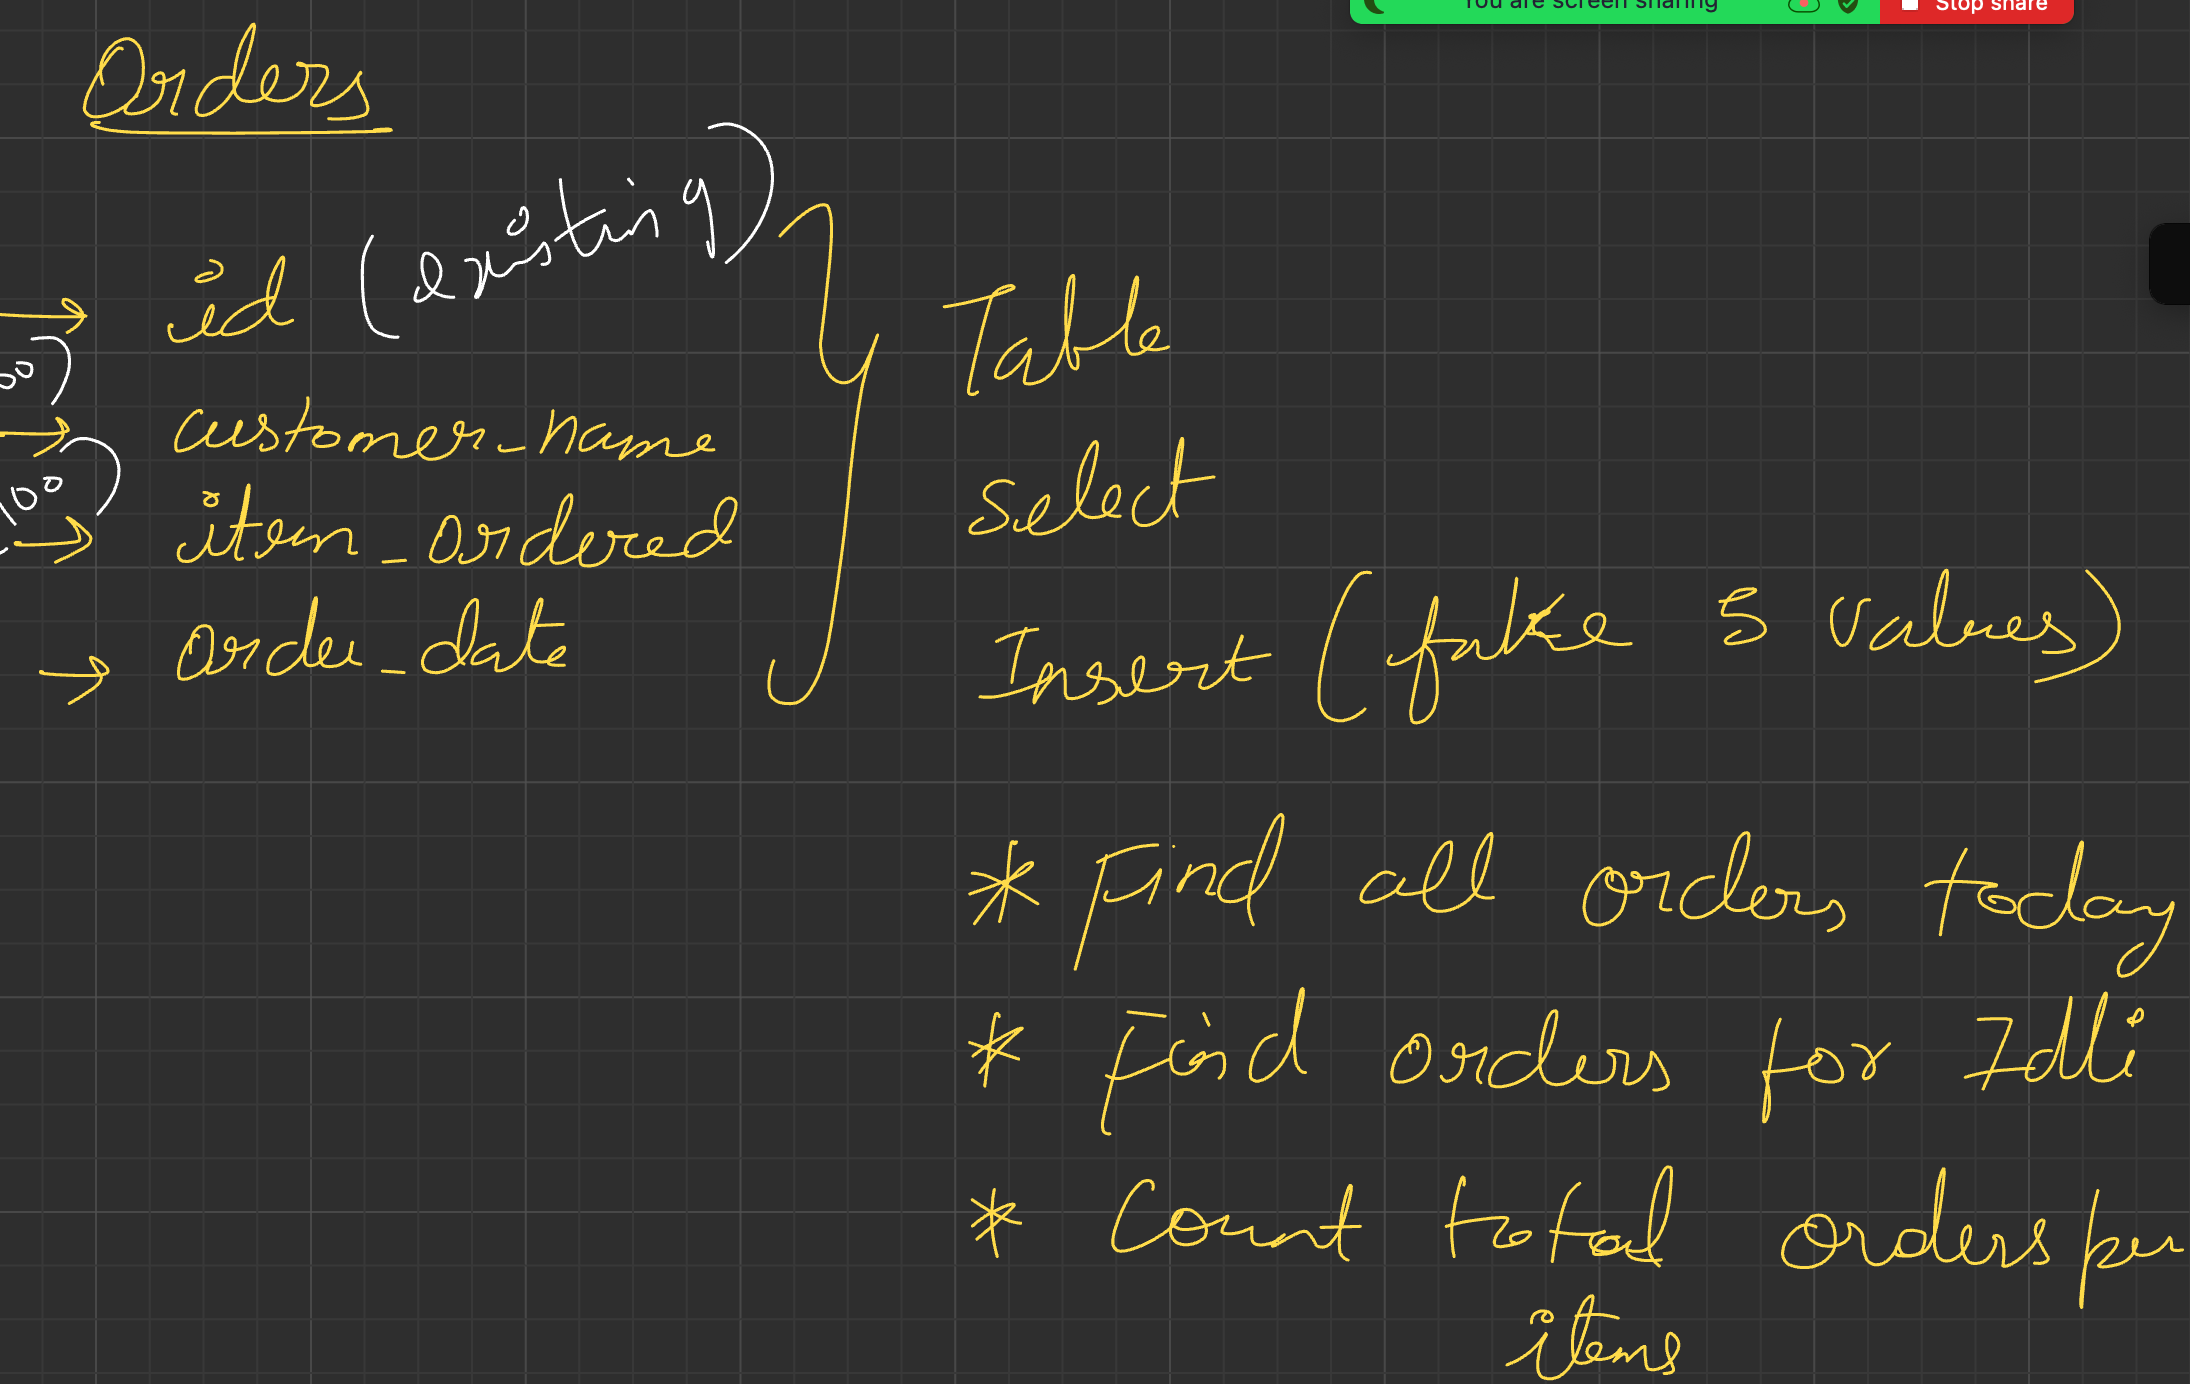 You are screen sharing Stop share
Orders
id (existing)
00)
customer_name
100)
item_ordered
order_date
Table
Select
Insert (fake 5 values)
* Find all orders today
* Find orders for Idli
* Count total orders per
items